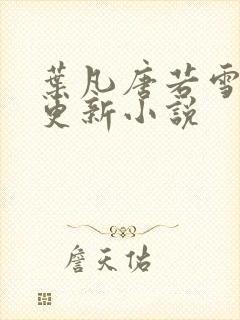 葉凡唐若雪
更新小說
詹天佑